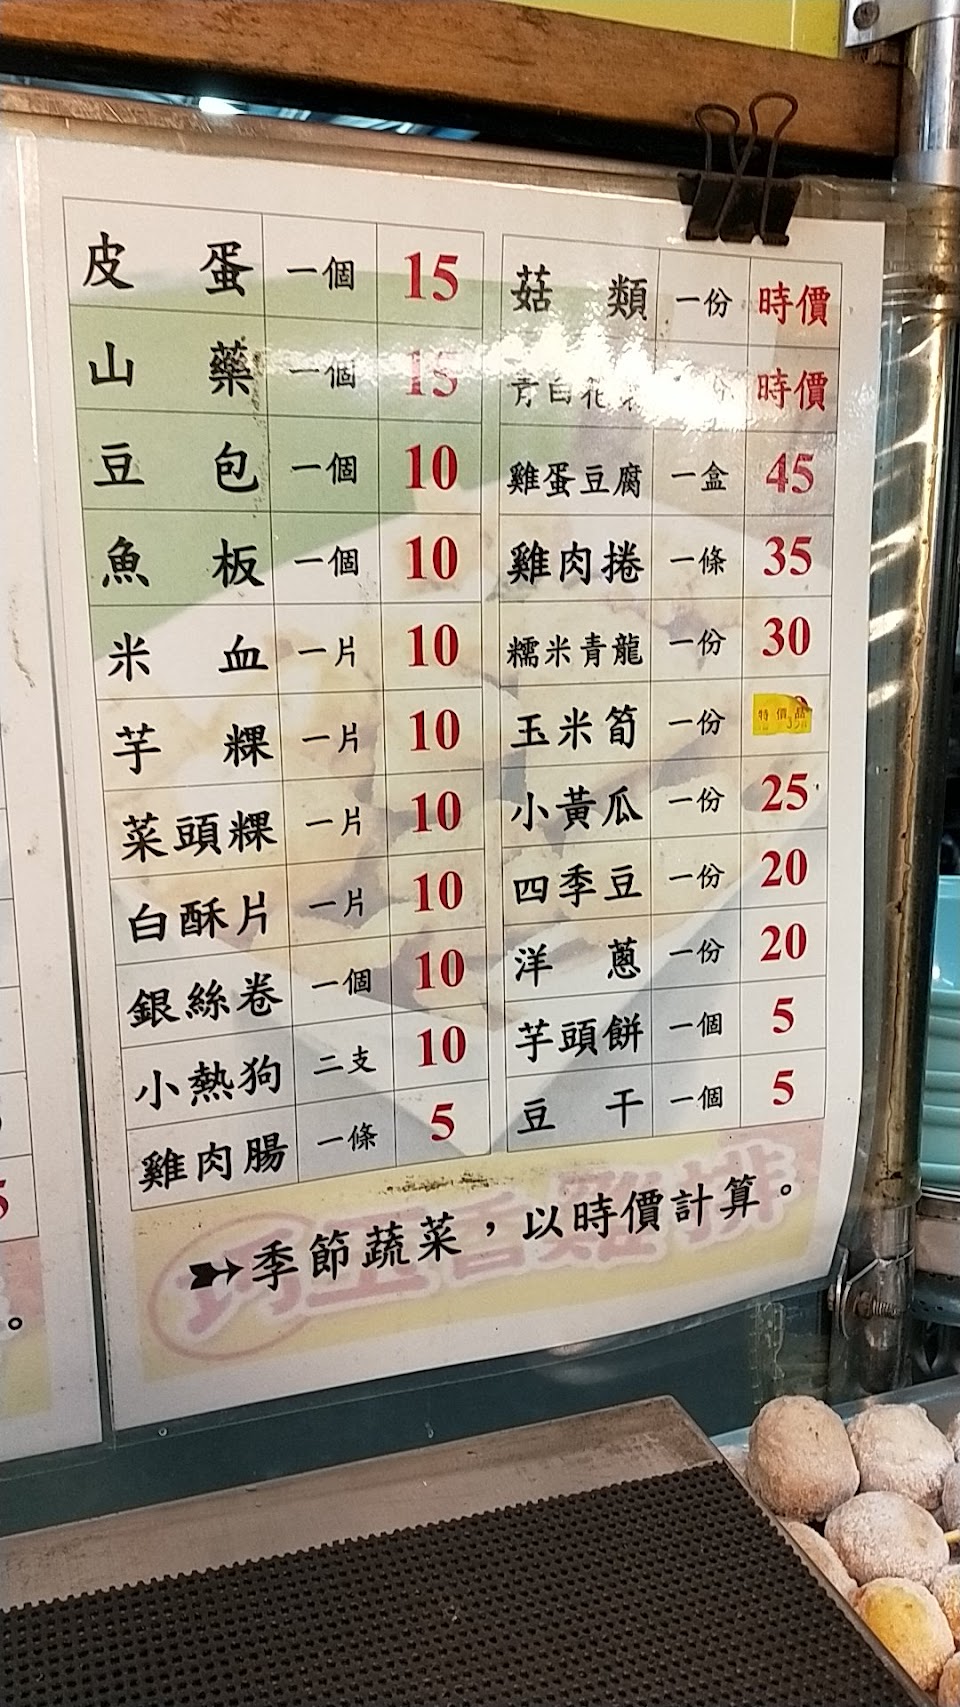 皮蛋 一個 15
山藥 一個 15
豆包 一個 10
魚板 一個 10
米血 一片 10
芋粿 一片 10
菜頭粿 一片 10
白酥片 一片 10
銀絲卷 一個 10
小熱狗 二支 10
雞肉腸 一條 5
菇類 一份 時價
青白花 份 時價
雞蛋豆腐 一盒 45
雞肉捲 一條 35
糯米青龍 一份 30
玉米筍 一份 特價品
小黃瓜 一份 25
四季豆 一份 20
洋蔥 一份 20
芋頭餅 一個 5
豆干 一個 5
➳季節蔬菜，以時價計算。
香雞排